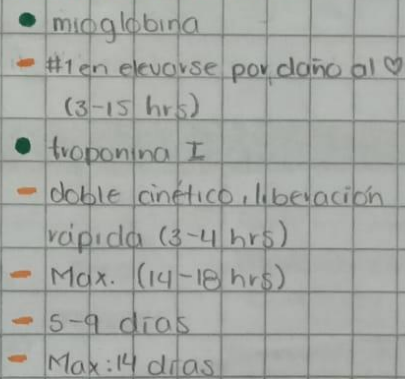 • mioglobina
- #1 en elevarse por daño al ♡
(3-15 hrs)
• troponina I
- doble cinético, liberación
rápida (3-4 hrs)
- Max. (14-18 hrs)
- 5-9 días
- Max: 14 días